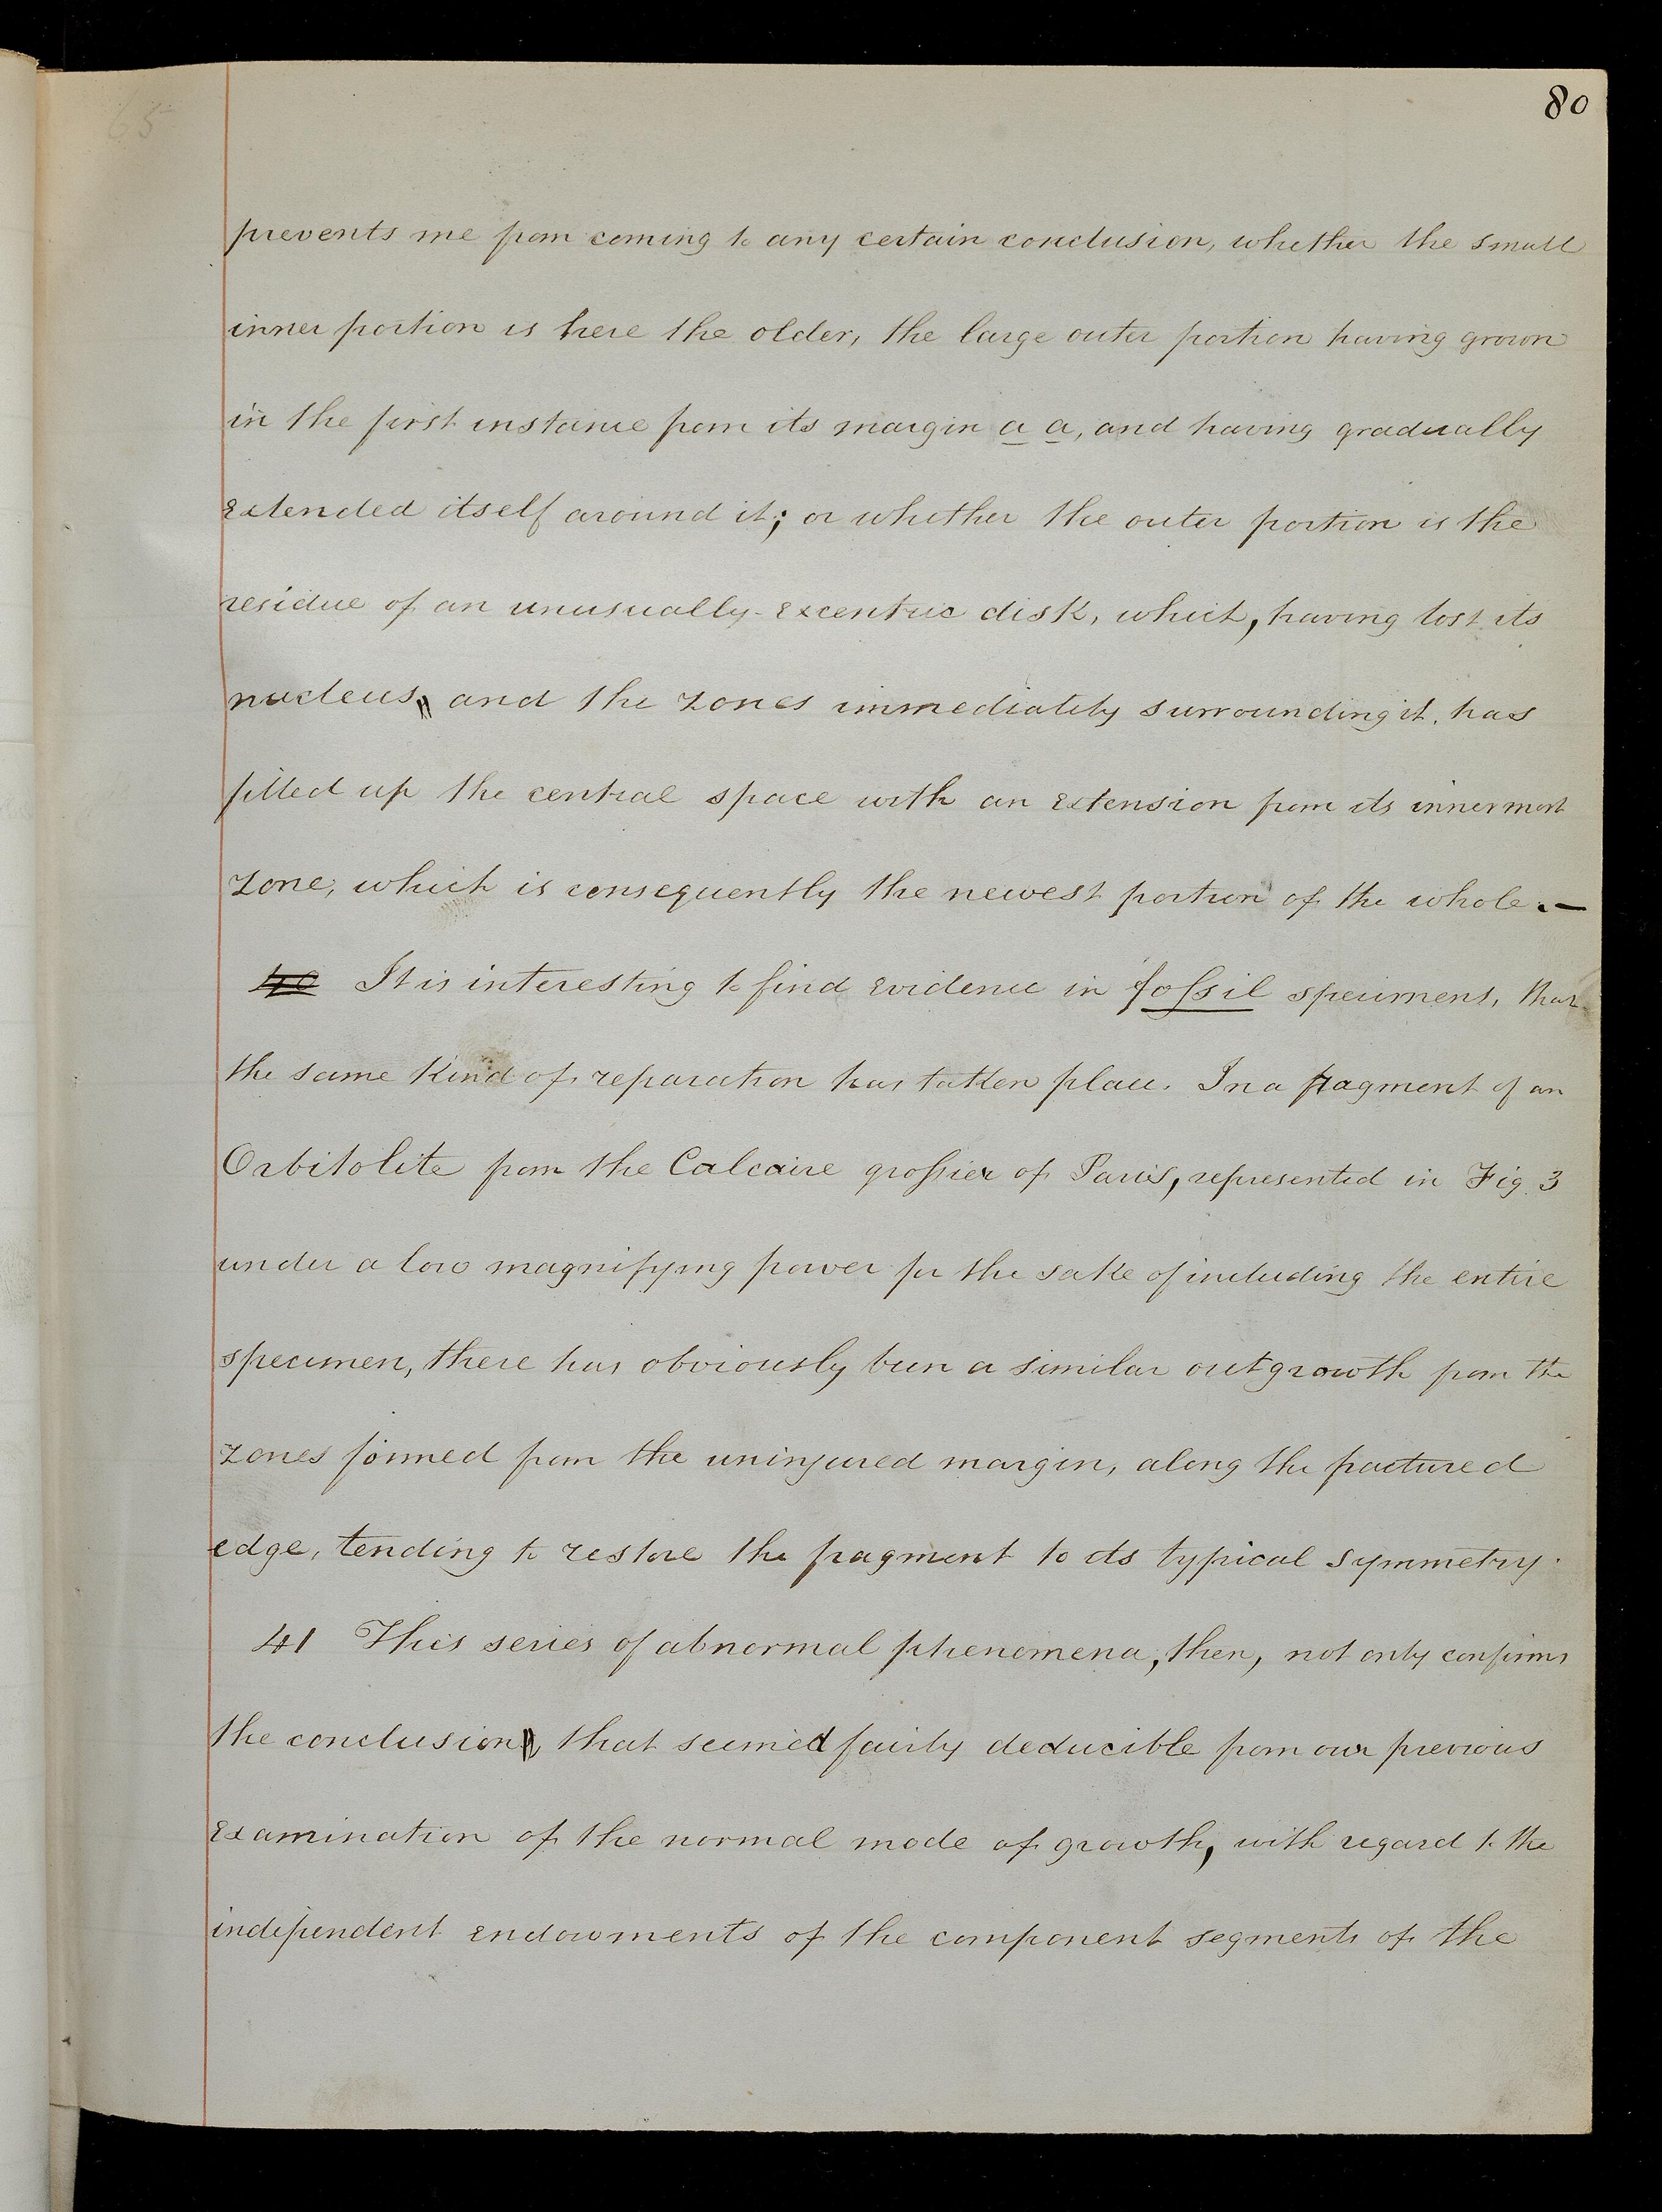 80
65
prevents me from coming to any certain conclusion, whether the small
inner portion is here the older, the large outer portion having grown
in the first instance from its margin a a, and having gradually
extended itself around it; or whether the outer portion is the
residue of an unusually-excentric disk, which, having lost its
nucleus, and the zones immediately surrounding it, has
filled up the central space with an extension from its innermost
zone, which is consequently the newest portion of the whole.—
40 It is interesting to find evidence in fossil specimens, that
the same kind of reparation has taken place. In a fragment of an
Orbitolite from the Calcaire grossier of Paris, represented in Fig. 3
under a low magnifying power for the sake of including the entire
specimen, there has obviously been a similar outgrowth from the
zones formed from the uninjured margin, along the fractured
edge, tending to restore the fragment to its typical symmetry.
41 This series of abnormal phenomena, then, not only confirms
the conclusion, that seemed fairly deducible from our previous
examination of the normal mode of growth, with regard to the
independent endowments of the component segments of the